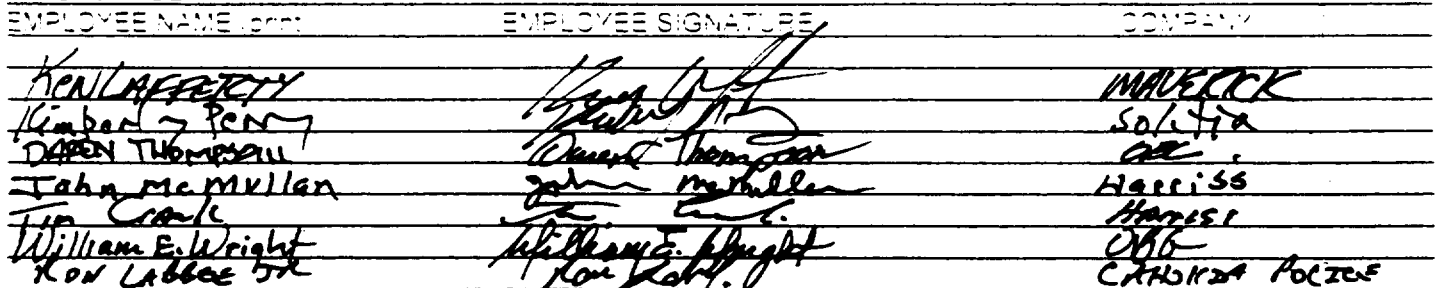 EMPLOYEE NAME (print) EMPLOYEE SIGNATURE COMPANY
KEN LAFFERTY MAVERICK
Kimberly Perry Solutia
DAREN THOMPSON Daren Thompson
John McMullan John McMullan Harriss
Tim Crank
William E. Wright William E. Wright OBG
RON LABBEE JR CAHOKIA POLICE